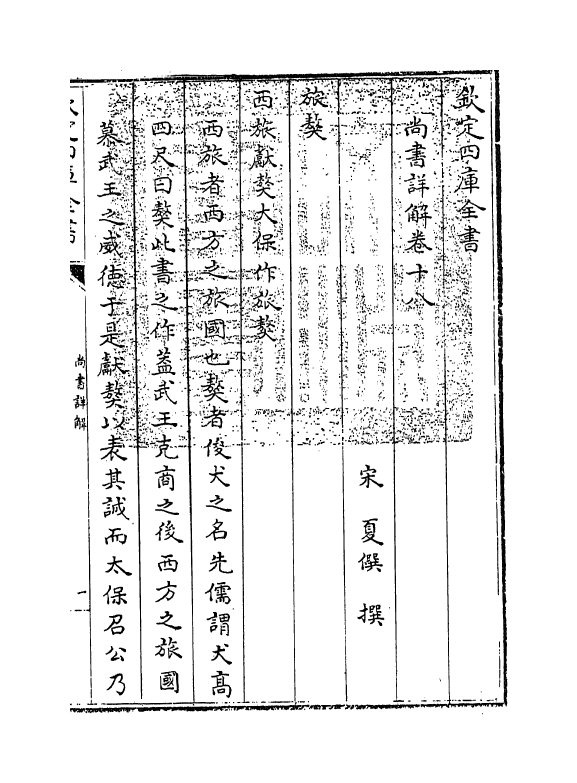 欽定四庫全書
尚書詳解卷十八
宋 夏僎 撰
旅獒
西旅獻獒大保作旅獒
西旅者西方之旅國也獒者俊犬之名先儒謂犬高
四尺曰獒此書之作葢武王克商之後西方之旅國
慕武王之威徳于是獻獒以表其誠而太保召公乃
欽定四庫全書
尚書詳解
一